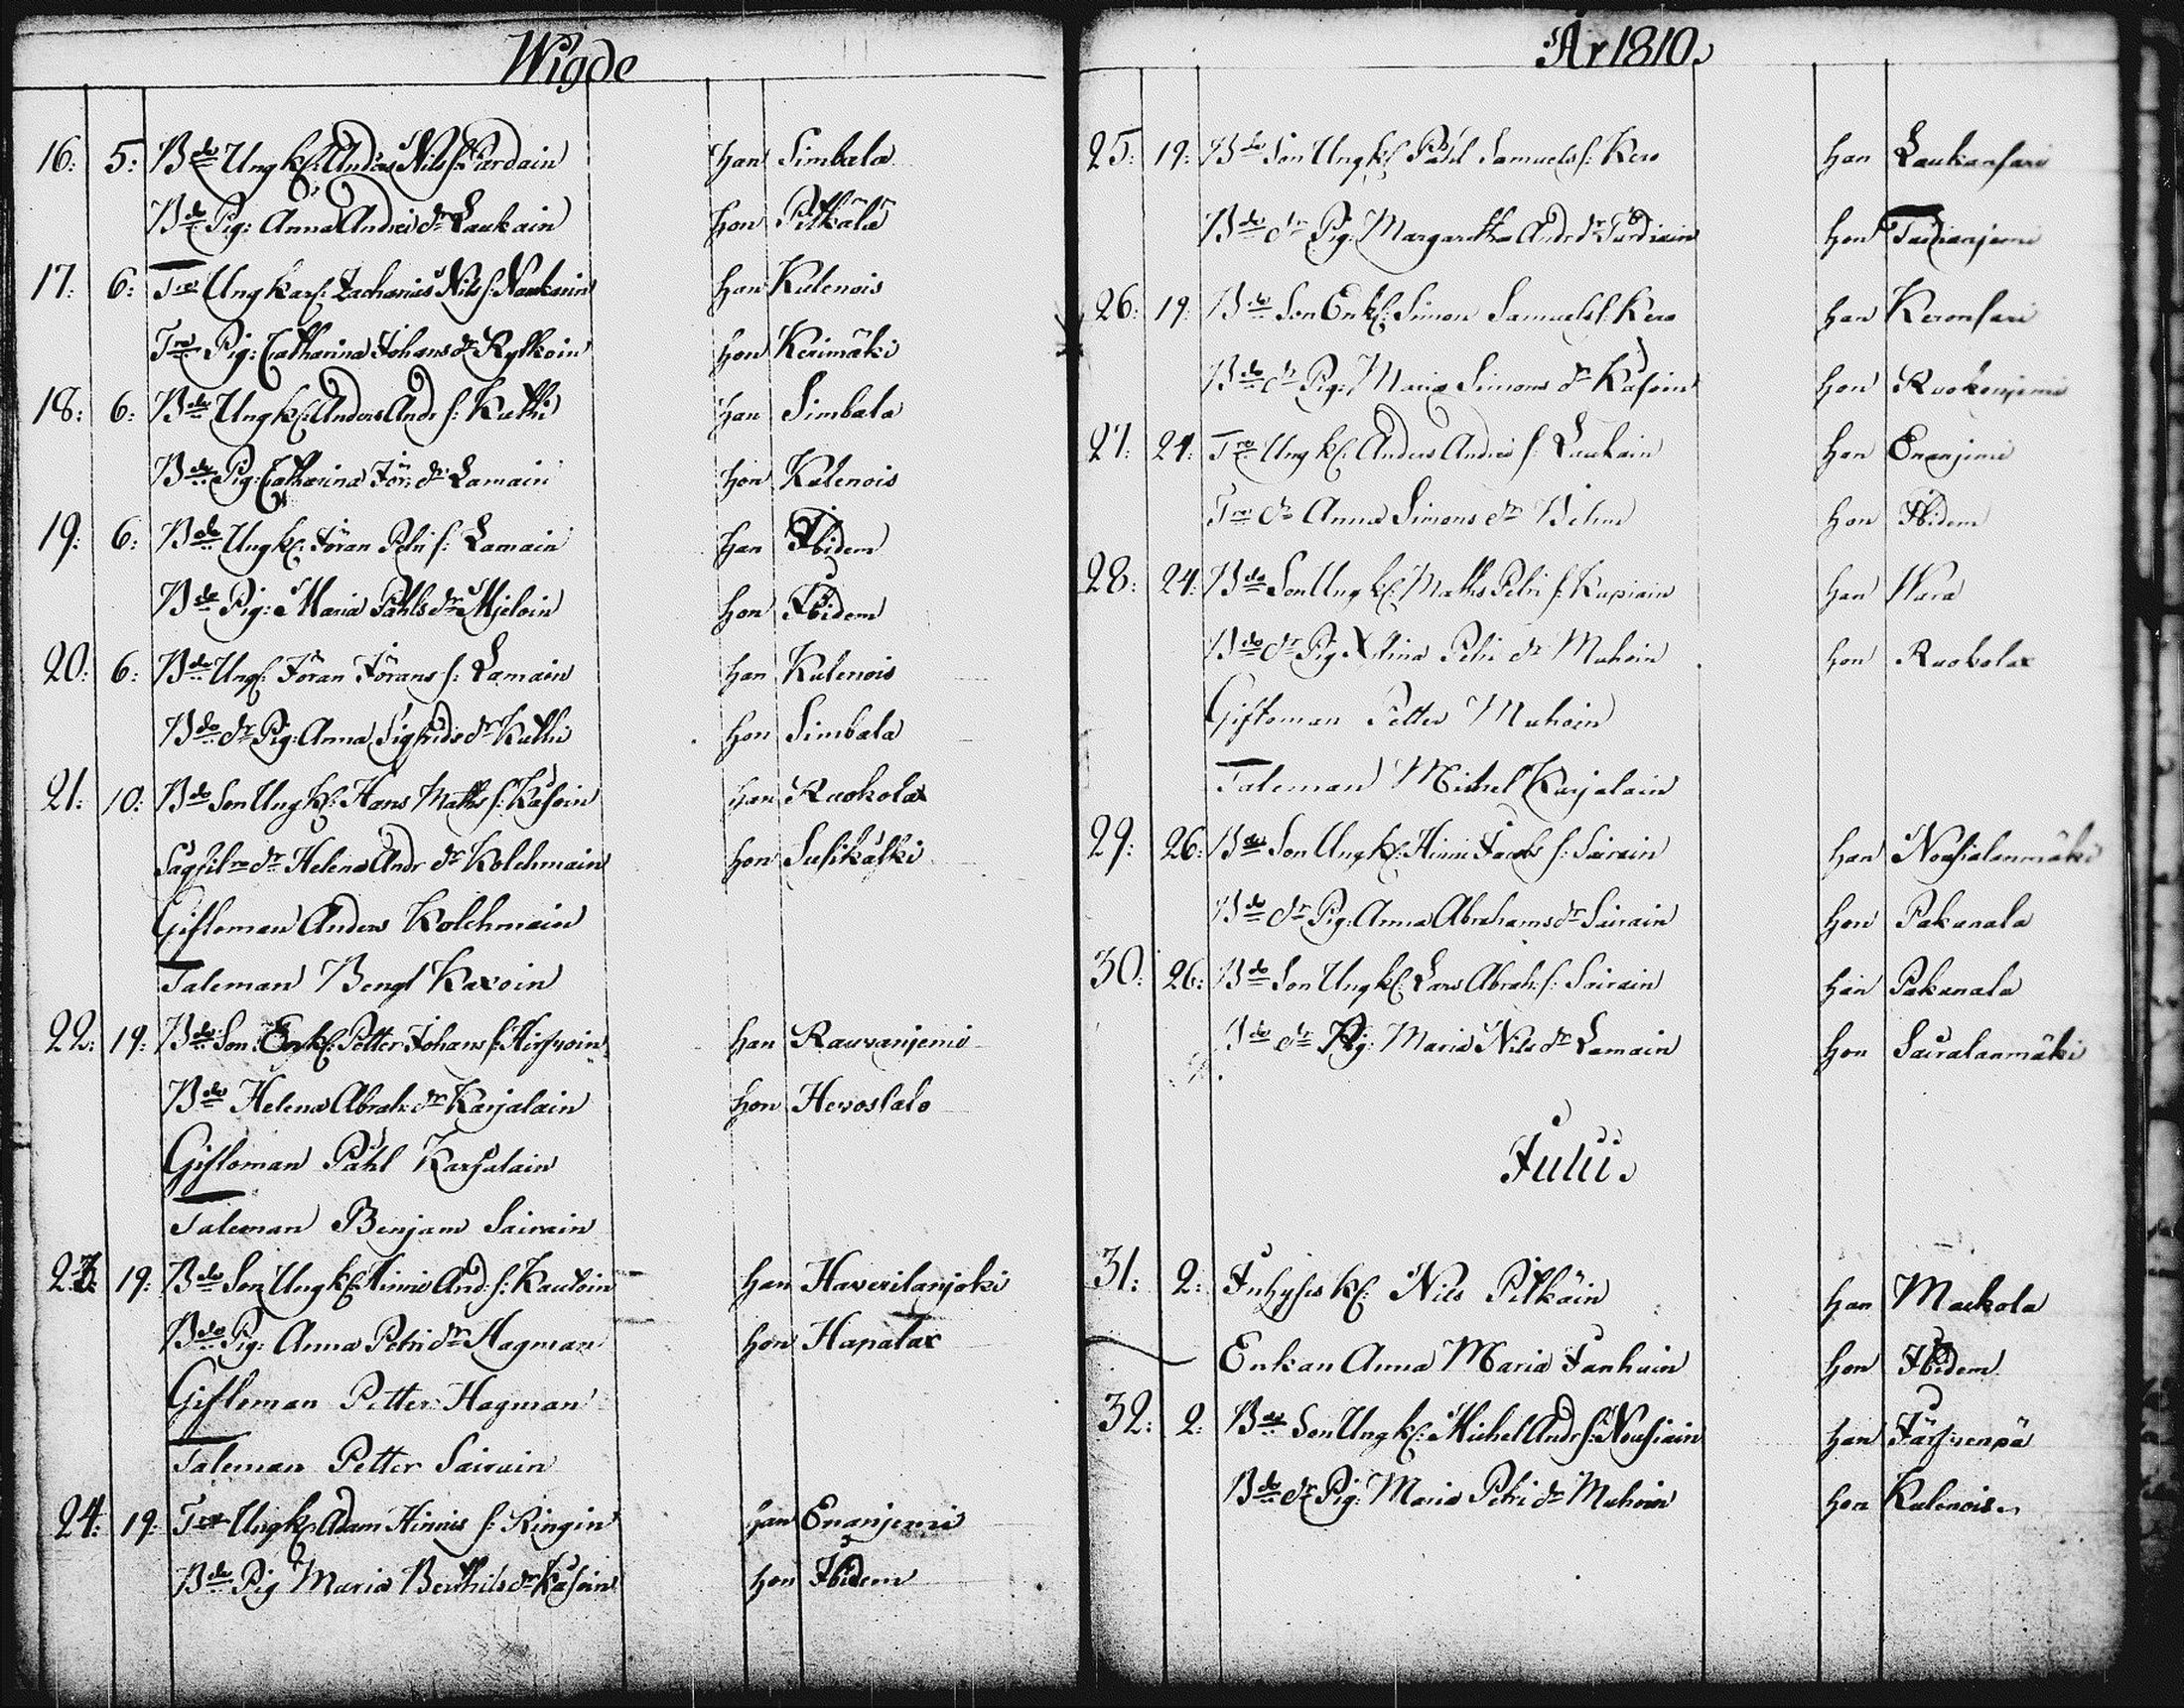 Wigde
16: 5: Bde Ung kf: Anders Nils f: Pardain han Simbala
Bde Pig: Anna Andrs dr Laukain hon Pitkälä
17: 6: Tre Ung karf: Zacharias Nils f: Naukarin han Kulenois
Tre Pig: Catharina Johans dr Rytkoin hon Kerimäki
18: 6: Bde Ung kf: Anders Andr f: Kuthi han Simbala
Bde Pig: Catharina Jör: dr Lamain hon Kulenois
19: 6: Bde Ung kf: Jöran Petri f: Lamain han Ibidem
Bde Pig: Maria Påhls dr Mjeloin hon Ibidem
20: 6: Bde Ungf: Jöran Jörans f: Lamain han Kulenois
Bde dr Pig: Anna Sigfrids dr Kuthi hon Simbala
21: 10: Bde Son Ung kf: Hans Maths f: Kåsoin han Ruokolax
dr Helena Andr dr Kolehmain hon Susikåski
Giftoman Anders Kolehmain
Taleman Bengt Kaxoin
22: 19: Bde Son Enkf: Petter Johans f: Hirfvoin han Rauvanjemi
Bde Helena Abrah: dr Karjalain hon Hevossalo
Giftoman Påhl Karjalain
Taleman Benjam Sairain
23: 19: Bde Son Ung kf: Hinric And: f: Kautoin han Haverilanjoki
Bde Pig: Anna Petri dr Hagman hon Hapalax
Giftoman Petter Hagman
Taleman Petter Sairain
24: 19: Tre Ung kf: Adam Hinrics f: Ringin han Enanjemi
Bde Pig Maria Berthils dr Kåsoin hon Ibidem
År 1810.
25: 19: Bde Son Ung kf: Påhl Samuels f: Kero han Laukansari
Bde dr Pig: Margaretha Andr dr Turdiain hon Turdianjemi
26: 19: Bde Son Enkf: Simon Samuels f: Kero han Keronsari
Bde dr Pig: Maria Simons dr Kåsoin hon Ruokonjemi
27: 24: Tre Ung kf: Anders Andrs f: Laukain han Enanjemi
Tre dr Anna Simons dr Behm hon Ibidem
28: 24: Bde Son Ung kf: Maths Petri f: Kupiain han Wara
Bde dr Pig Xstina Petri dr Muhoin hon Ruokolax
Giftoman Petter Muhoin
Taleman Michel Karjalain
29: 26: Bde Son Ung kf: Hinric Jacobs f: Sairain han Nousialanmäki
Bde dr Pig: Anna Abrahams dr Sairain hon Pakanala
30: 26: Bde Son Ung kf: Lars Abrah: f: Sairain han Pakanala
Bde dr Pig: Maria Nils dr Lamain hon Sairalanmäki
Julii.
31: 2: Inhyses kf: Nils Pitkäin han Mackola
Enkan Anna Maria Tanhuin hon Ibidem
32: 2: Bde Son Ung kf: Michel Andr f: Nousiain han Järfvenpä
Bde dr Pig: Maria Petri dr Muhoin hon Kulenois.